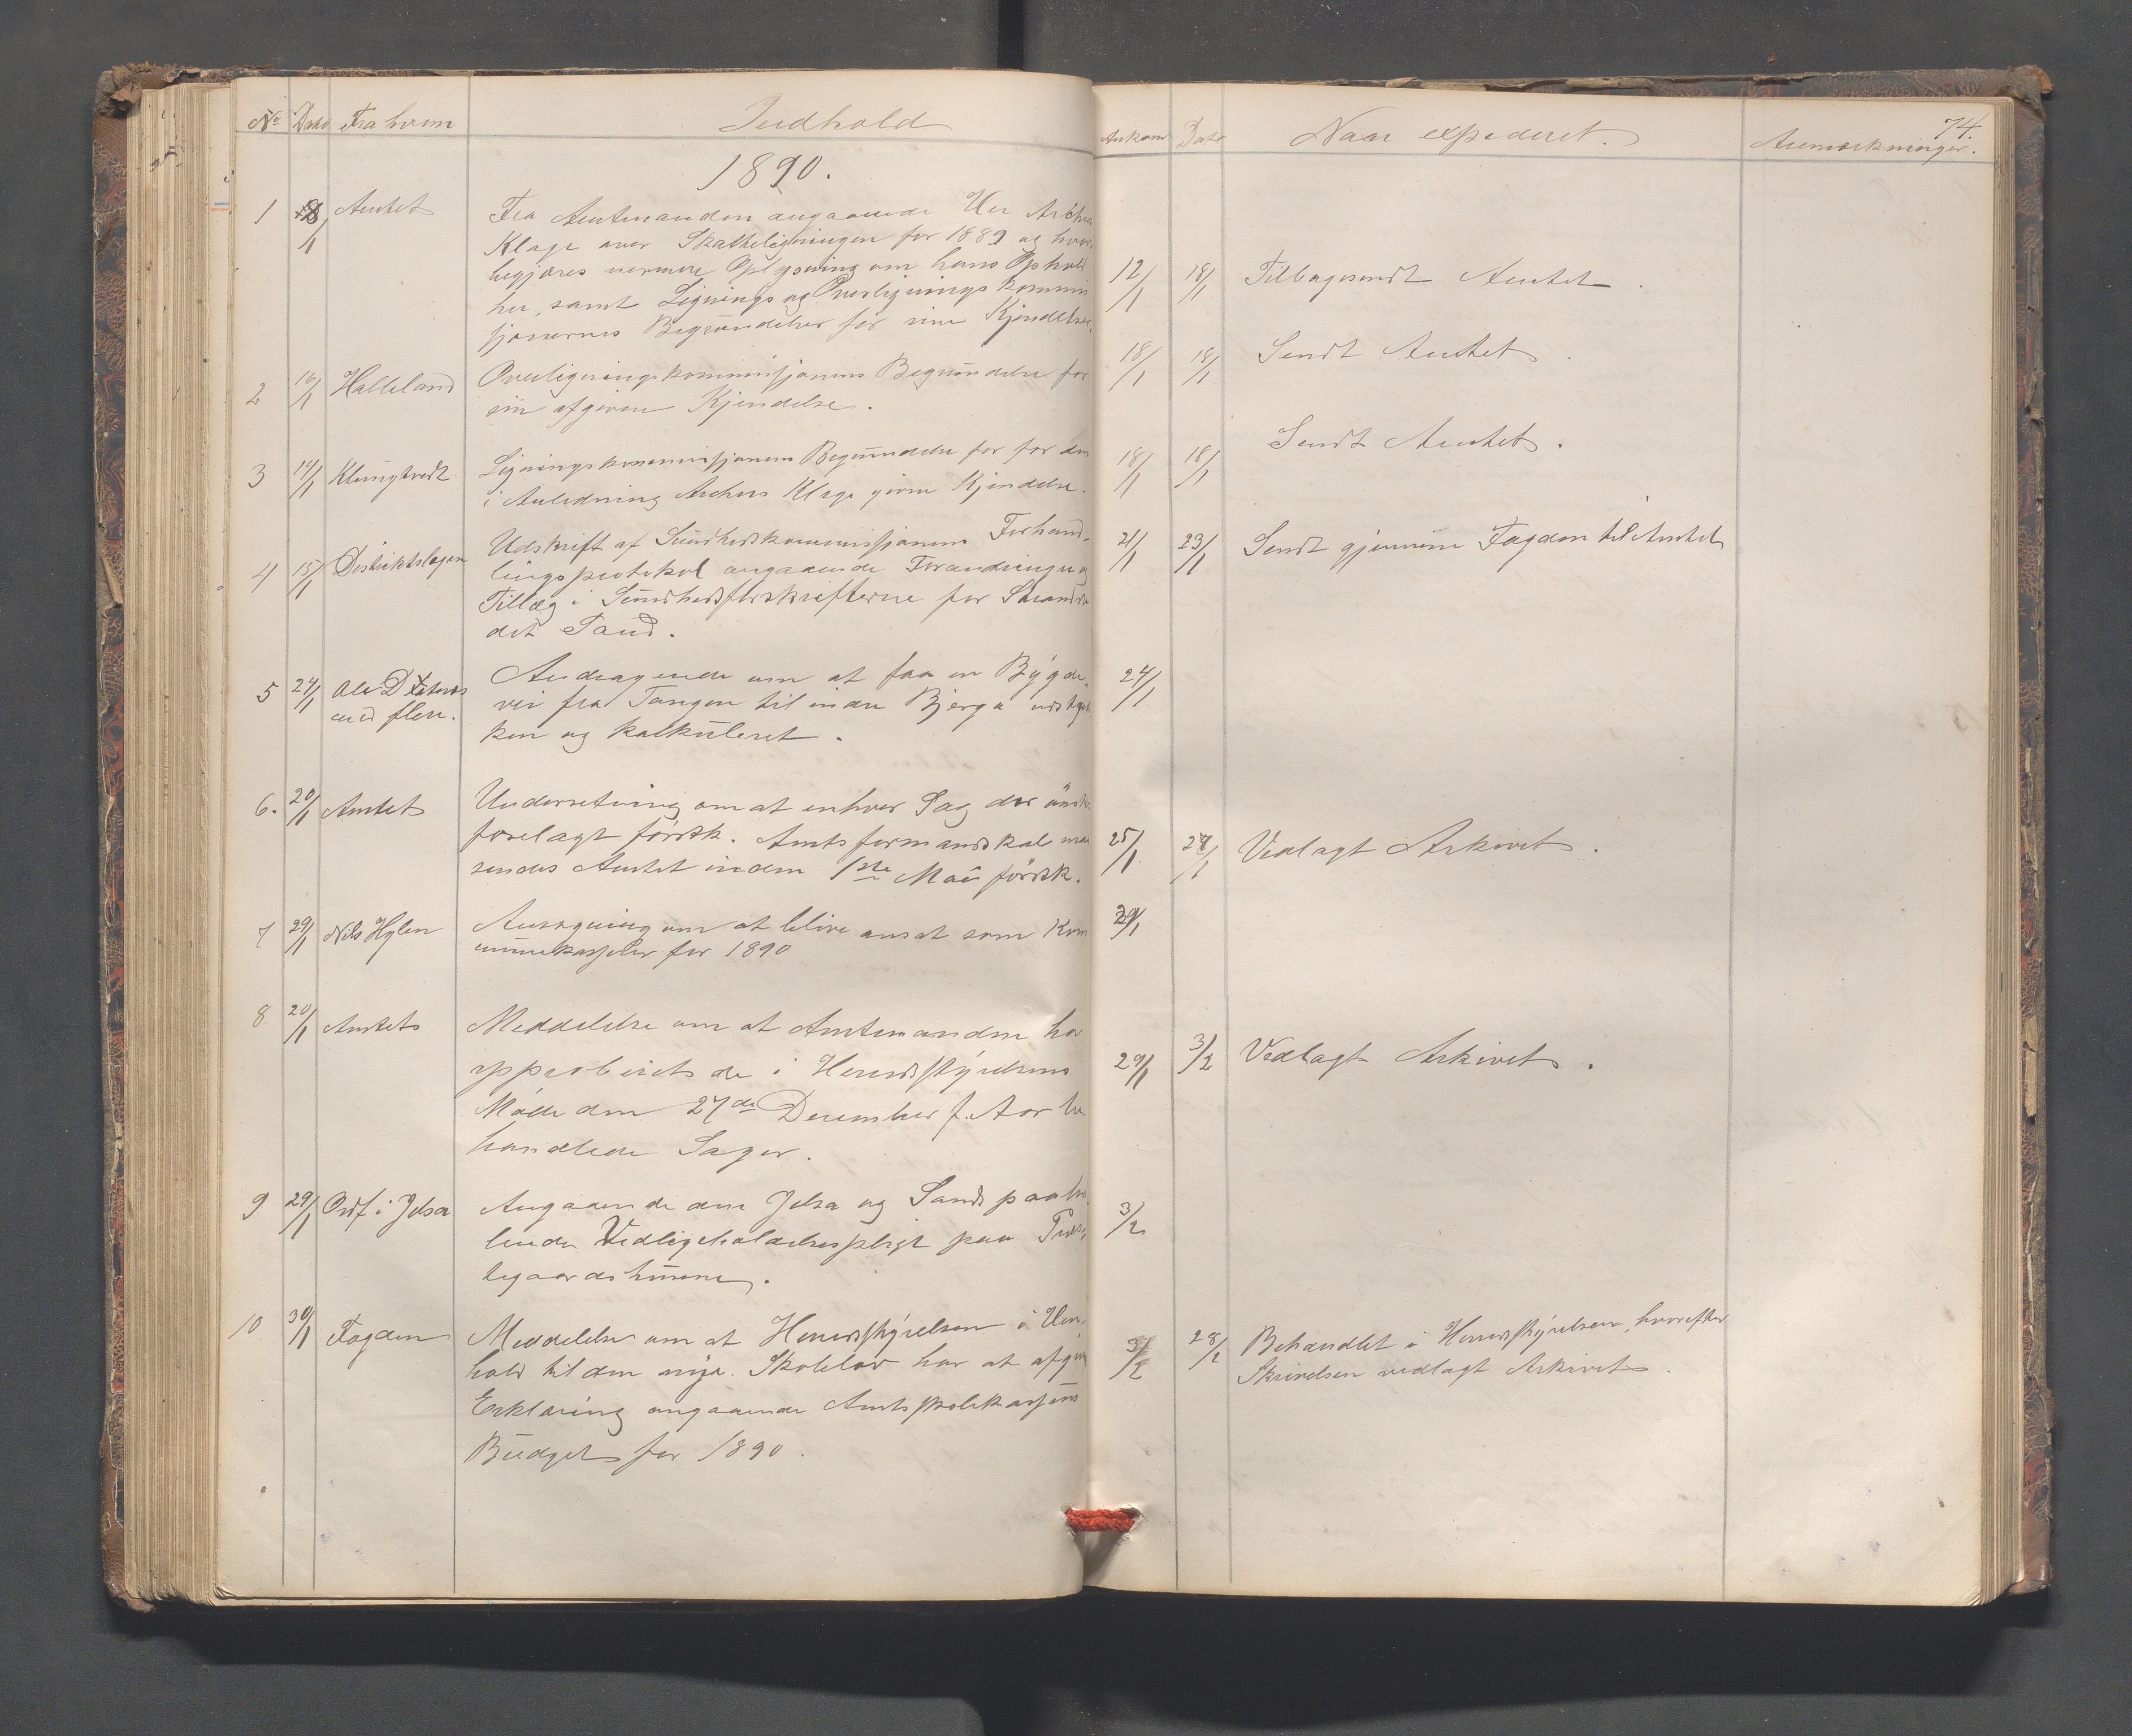 No Dato Fra hvem Indhold
1890.
1 8/1 Amtet Fra Amtmanden angaaende Her Archers
Klage over Skatteligningen for 1889 og hvori
begjæres nærmere Oplysning om hans Ophold
her, samt Lignings og Overlignings kommis
sjonernes Begrundelser for sine Kjendelser.
2 16/1 Halleland Overligningskommissjonens Begrundelse for
sin afgivne Kjendelse.
3 14/1 Klungtvedt Ligningskommissjonens Begrundelse for for den
i Anledning Archers Klage givne Kjendelse.
4 15/1 Distriktslægen Udskrift af Sundhedskommissjonens Forhand-
lingsprotokol angaaende Forandringer og
Tillæg i Sundhedsforskrifterne for Strandste
det Sand.
5 24/1 Ole D.
med flere. Andragende om at faa en Bygde-
vei fra Tangen til indre Bjerga udstuk
ken og kalkuleret.
6. 20/1 Amtet Underretning om at enhver Sag der ønskes
forelagt førstk. Amtsformandskab maa
sendes Amtet inden 1ste Mai førstk.
7 29/1 Nils Hylen Ansøgning om at blive ansat som Kom
munekasserer for 1890
8 20/1 Amtet Meddelelse om at Amtmanden har
approberet de i Herredsstyrelsens
Møde den 27de December f. Aar be
handlede Sager.
9 29/1 Ordf i Jelsa Angaaende den Jelsa og Sand paahvi
lende Vedligeholdelsespligt paa Præs-
tegaardshusene.
10 30/1 Fogden Meddelelse om at Herredsstyrelsen i Hen-
hold til den nye. Skolelov har at afgive
Erklæring angaaende Amtsskolekassens
Budget for 1890.
74.
Ankom Dato Naar expederet. Anmærkninger.
12/1 18/1 Tilbagesendt Amtet.
18/1 18/1 Sendt Amtet.
18/1 18/1 Sendt Amtet.
21/1 23/1 Sendt gjennem Fogden til Amtet
24/1
25/1 27/1 Vedlagt Arkivet.
29/1
29/1 3/2 Vedlagt Arkivet.
3/2
3/2 28/2 Behandlet i Herredsstyrelsen, hvorefter
Skrivelsen vedlagt Arkivet.